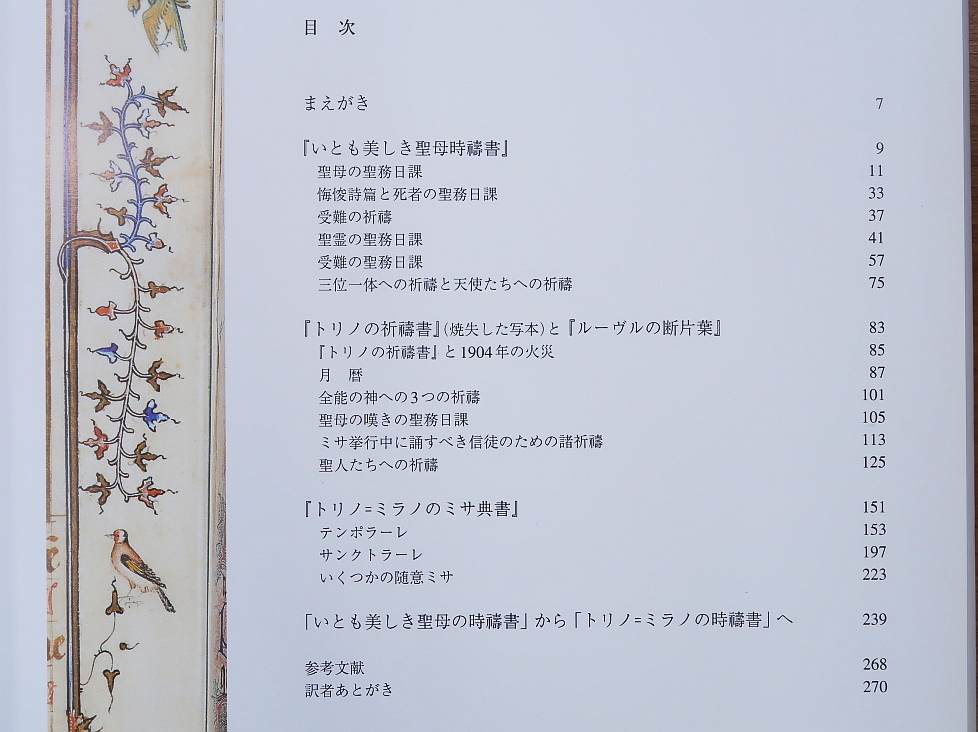 目　次
まえがき 7
『いとも美しき聖母時禱書』 9
聖母の聖務日課 11
悔悛詩篇と死者の聖務日課 33
受難の祈禱 37
聖霊の聖務日課 41
受難の聖務日課 57
三位一体への祈禱と天使たちへの祈禱 75
『トリノの祈禱書』(焼失した写本)と『ルーヴルの断片葉』 83
『トリノの祈禱書』と1904年の火災 85
月　暦 87
全能の神への3つの祈禱 101
聖母の嘆きの聖務日課 105
ミサ挙行中に誦すべき信徒のための諸祈禱 113
聖人たちへの祈禱 125
『トリノ=ミラノのミサ典書』 151
テンポラーレ 153
サンクトラーレ 197
いくつかの随意ミサ 223
「いとも美しき聖母の時禱書」から「トリノ=ミラノの時禱書」へ 239
参考文献 268
訳者あとがき 270